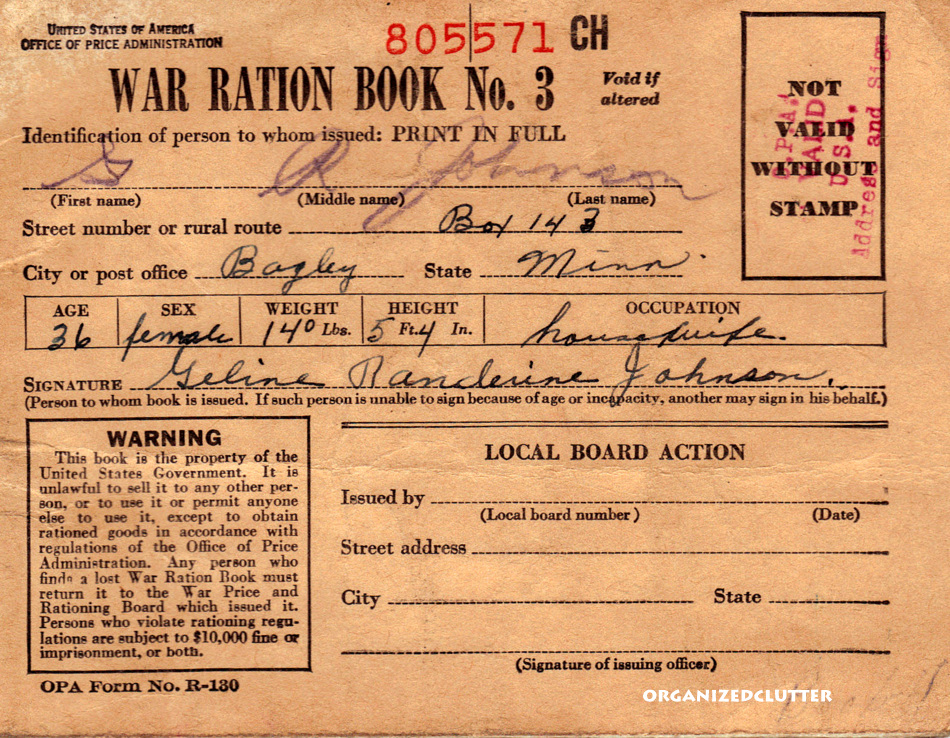 UNITED STATES OF AMERICA
OFFICE OF PRICE ADMINISTRATION
805571 CH
WAR RATION BOOK No. 3 Void if altered
Identification of person to whom issued: PRINT IN FULL
G R Johnson
(First name) (Middle name) (Last name)
Street number or rural route Box 143
City or post office Bagley State Minn.
AGE SEX WEIGHT HEIGHT OCCUPATION
36 female 140 Lbs. 5 Ft. 4 In. housewife.
SIGNATURE Geline Randerine Johnson.
(Person to whom book is issued. If such person is unable to sign because of age or incapacity, another may sign in his behalf.)
NOT
VALID
WITHOUT
STAMP
O.P.A.
VALID
U.S.A.
Address and Sign
WARNING
This book is the property of the
United States Government. It is
unlawful to sell it to any other per-
son, or to use it or permit anyone
else to use it, except to obtain
rationed goods in accordance with
regulations of the Office of Price
Administration. Any person who
finds a lost War Ration Book must
return it to the War Price and
Rationing Board which issued it.
Persons who violate rationing regu-
lations are subject to $10,000 fine or
imprisonment, or both.
OPA Form No. R-130
LOCAL BOARD ACTION
Issued by
(Local board number) (Date)
Street address
City State
(Signature of issuing officer)
ORGANIZEDCLUTTER